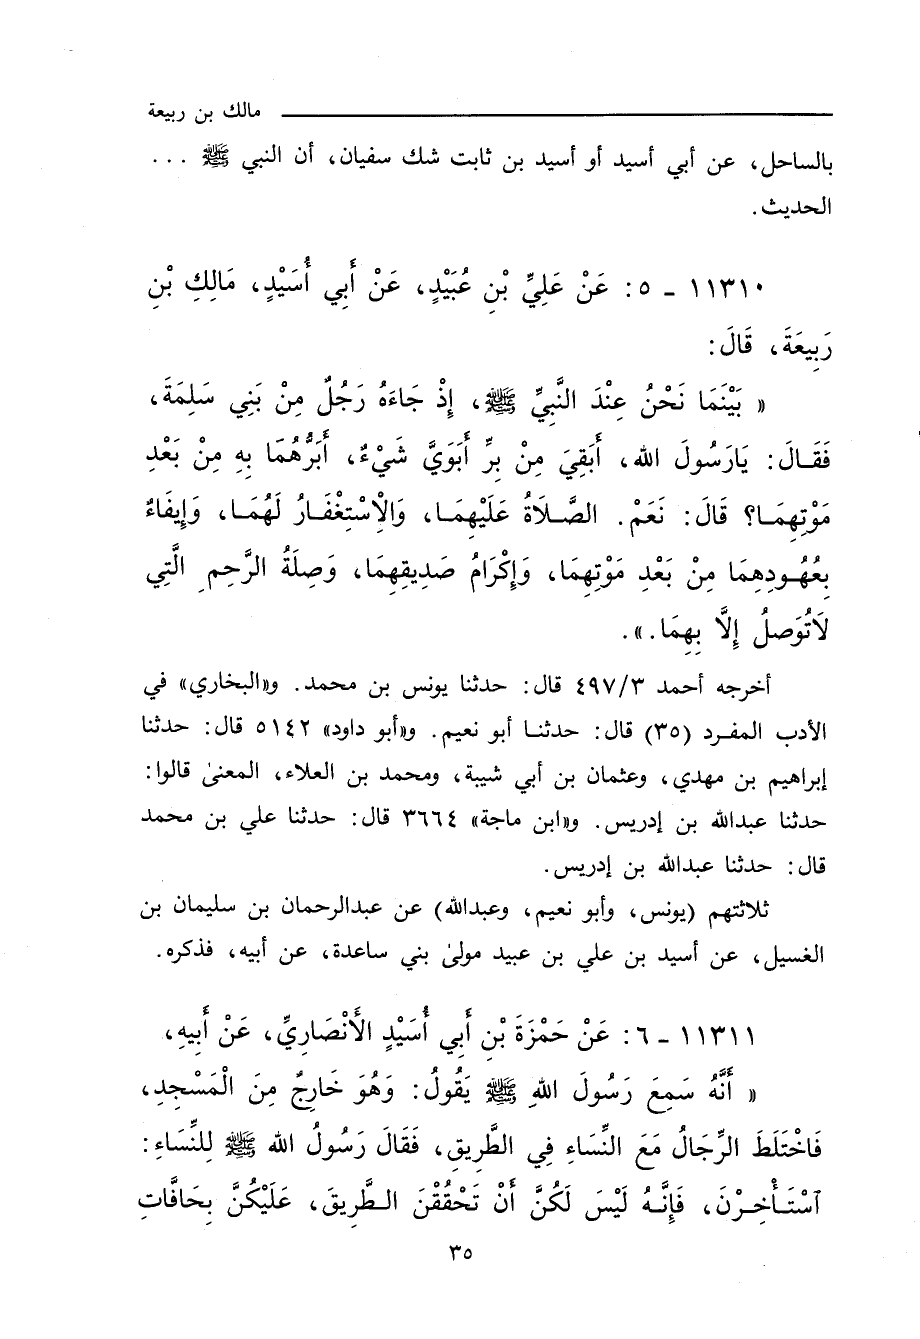 مالك بن ربيعة
بالساحل، عن أبي أسيد أو أسيد بن ثابت شك سفيان، أن النبي ﷺ ...
الحديث.
١١٣١٠ ـ ٥: عَنْ عَلِيِّ بْنِ عُبَيْدٍ، عَنْ أَبِي أُسَيْدٍ، مَالِكِ بْنِ
رَبِيعَةَ، قَالَ:
« بَيْنَمَا نَحْنُ عِنْدَ النَّبِيِّ ﷺ، إِذْ جَاءَهُ رَجُلٌ مِنْ بَنِي سَلِمَةَ،
فَقَالَ: يَارَسُولَ الله، أَبَقِيَ مِنْ بِرِّ أَبَوَيَّ شَيْءٌ، أَبَرُّهُمَا بِهِ مِنْ بَعْدِ
مَوْتِهِمَا؟ قَالَ: نَعَمْ. الصَّلَاةُ عَلَيْهِمَا، وَالْاِسْتِغْفَارُ لَهُمَا، وَإِيفَاءٌ
بِعُهُودِهِمَا مِنْ بَعْدِ مَوْتِهِمَا، وَإِكْرَامُ صَدِيقِهِمَا، وَصِلَةُ الرَّحِمِ الَّتِي
لَاتُوَصلُ إِلَّا بِهِمَا.».
أخرجه أحمد ٤٩٧/٣ قال: حدثنا يونس بن محمد. و«البخاري» في
الأدب المفرد (٣٥) قال: حدثنا أبو نعيم. و«أبو داود» ٥١٤٢ قال: حدثنا
إبراهيم بن مهدي، وعثمان بن أبي شيبة، ومحمد بن العلاء، المعنىٰ قالوا:
حدثنا عبدالله بن إدريس. و«ابن ماجة» ٣٦٦٤ قال: حدثنا علي بن محمد
قال: حدثنا عبدالله بن إدريس.
ثلاثتهم (يونس، وأبو نعيم، وعبدالله) عن عبدالرحمان بن سليمان بن
الغسيل، عن أسيد بن علي بن عبيد مولىٰ بني ساعدة، عن أبيه، فذكره.
١١٣١١ ـ ٦: عَنْ حَمْزَةَ بْنِ أَبِي أُسَيْدٍ الأَنْصَارِيِّ، عَنْ أَبِيهِ،
« أَنَّهُ سَمِعَ رَسُولَ اللهِ ﷺ يَقُولُ: وَهُوَ خَارِجٌ مِنَ الْمَسْجِدِ،
فَاخْتَلَطَ الرِّجَالُ مَعَ النِّسَاءِ فِي الطَّرِيقِ، فَقَالَ رَسُولُ الله ﷺ لِلنِّسَاءِ:
ٱسْتَأْخِرْنَ، فَإِنَّهُ لَيْسَ لَكُنَّ أَنْ تَحْقُقْنَ الطَّرِيقَ، عَلَيْكُنَّ بِحَافَّاتِ
٣٥